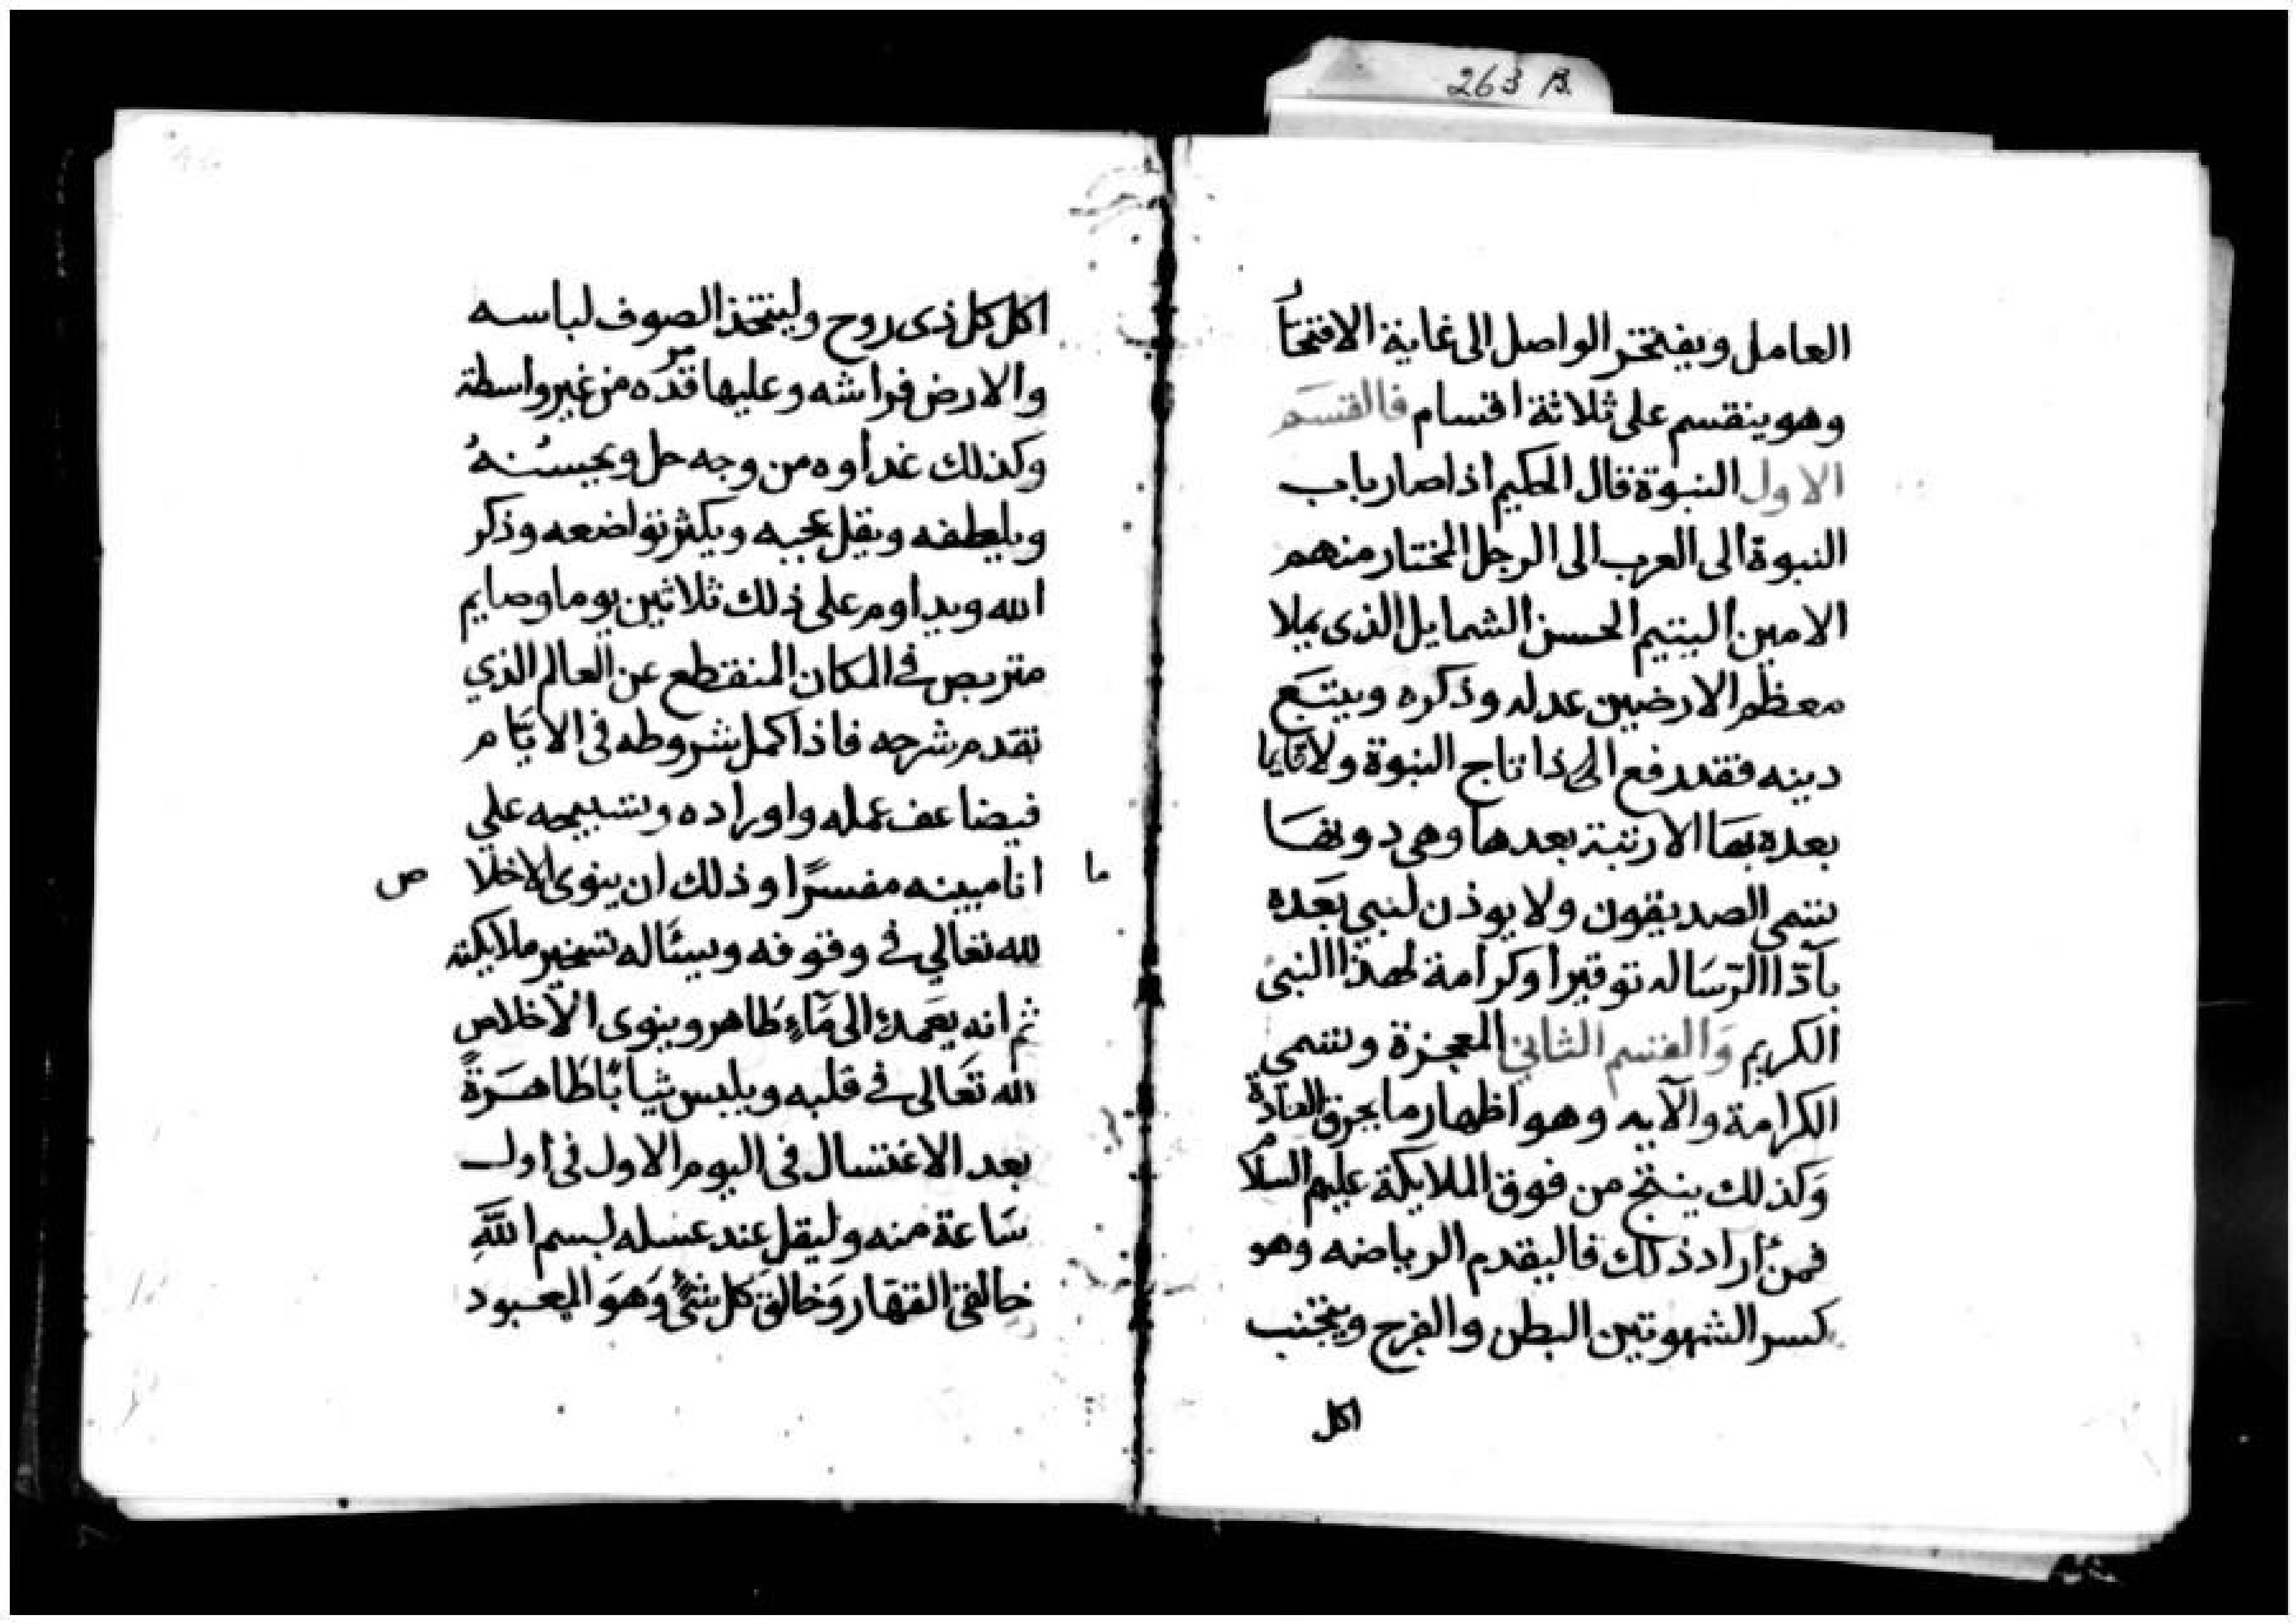 263 B.
العامل ويفتخر الواصل الى غاية الافتخار
وهو ينقسم على ثلاثة اقسام فالقسم
الاول النبوة قال الحكيم اذا صار باب
النبوة الى العرب الى الرجل المختار منهم
الامين اليتيم الحسن الشمايل الذى يملا
معظم الارضين عدله وذكره ويتبع
دينه فقد رفع الى ذا تاج النبوة ولا
بعده بها الا رتبة بعدها وهى دونها
تنتمى الصديقون ولا يوذن لنبي بعده
بآدّا الرّسَاله توقيرا وكرامة لهذا النبى
الكريم وَالقسم الثاني المعجزة وتسمى
الكرامة والآيه وهو اظهار ما يخرق العَادَة
وَكذلك ينتج من فوق الملايكة عليهم السلام
فمن أراد ذلك فاليقدم الرياضه وهو
كسر الشهوتين البطن والفرج ويتجنب
اكل
اكل كل ذى روح وليتخذ الصوف لباسه
والارض فراشه وعليها من غير واسطة
وكذلك غداوه من وجه حل ويحسُنهُ
ويلطفه ويقل عجبه ويكثر تواضعه وذكر
الله ويداوم على ذلك ثلاثين يوما وصايم
متربص في المكان المنقطع عن العالم الذي
تقدم شرحه فاذا كمل شروطه فى الايَّام
فيضاعف عمله واوراده وتسبيحه علي
ما انا مبينه مفسرًا وذلك ان ينوى الاخلاص
لله تعالي في وقوفه ويسئَاله تسخير ملايكته
ثم انه يعَمد الى مَآءٍ طَاهر وينوى الآخلاص
لله تعَالى في قلبه ويلبس ثيابًا طَاهَرةً
بعد الاغتسال فى اليوم الاول فى أول
سَاعة منه وليقل عند غسله بسم اللَّهِ
خالقى القهّار وَخالق كل شىٍْ وَهوَ المعبود